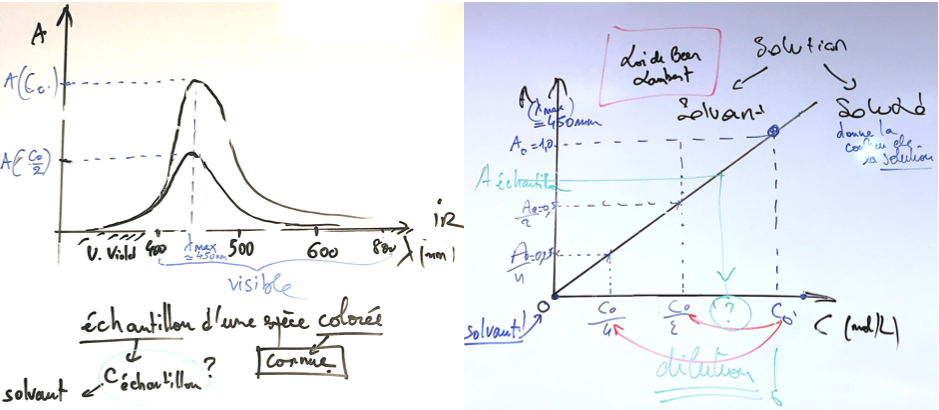 A
A(C₀)
A(C₀/2)
U. Violet 400 λmax ≃450nm 500 600 800 λ(nm)
iR
visible
échantillon d'une espèce colorée
connue
C échantillon ?
solvant
Loi de Beer
Lambert
Solution
Solvant
Soluté
donne la
couleur de
la solution
A(λmax)
≃450nm
A₀=1,0
A échantillon
A₀/2=0,5
A₀/4=0,25
O
solvant!
C₀/4 C₀/2 ? C₀ C (mol/L)
dilution